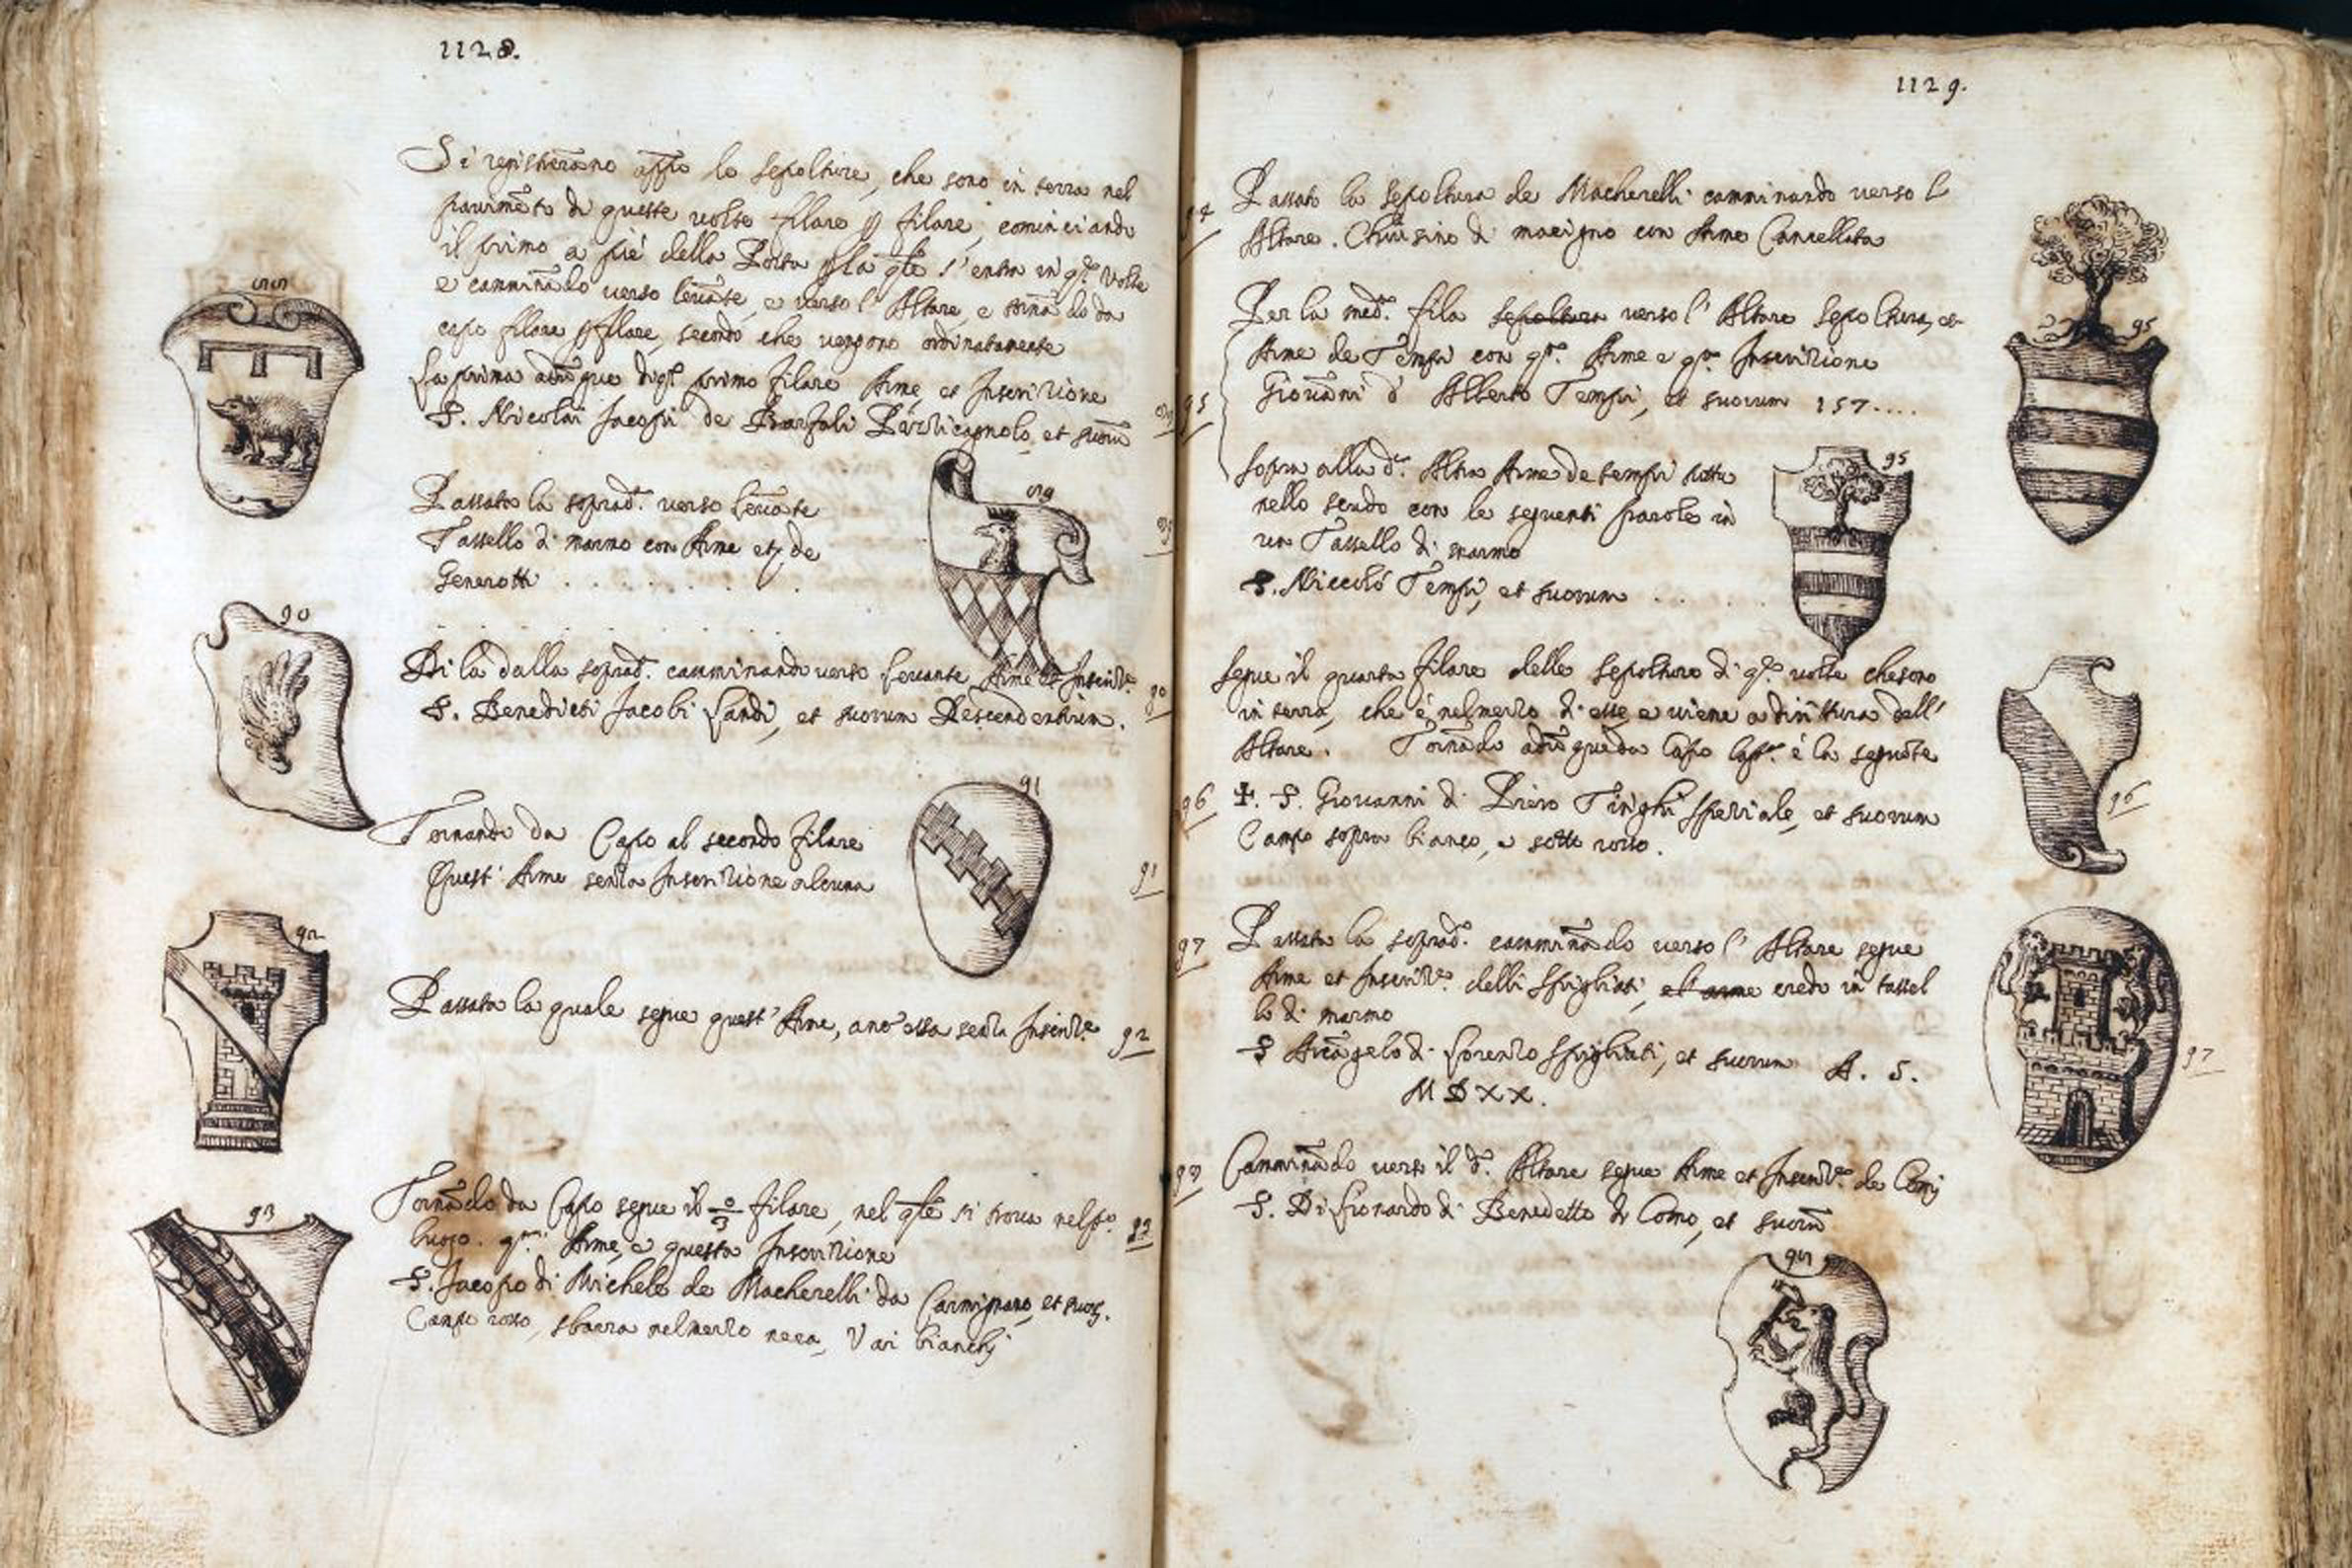 1128.
Si registrerãno app̃o le sepolture, che sono in terra nel
pavimẽto di queste volte filare p filare, cominciando
il primo a piè della Porta p la q̃le s'entra in q.te Volte
e camminãdo verso levãte, e verso l'Altare, e tornãdo da
capo filare p filare, secõdo che vengono ordinatamente
La prima adũque di q.o primo filare Arme et Inscrizione
88
S. Nicolai Jacopi de et suorũ
Passata la soprad.a verso levãte
Tassello di marmo con Arme etc de
Generotti . . . . . . .
89
90
Di là dalla soprad.a camminando verso Levante Arme et Inscriz.e
S. Benedicti Jacobi Landi, et suorum Descendentium.
90
91
Tornando da Capo al secondo filare
Quest' Arme senza Inscrizione alcuna
91
92
Passata la quale segue quest' Arme, anc'essa senza Inscriz.e
92
93
Tornãdo da Capo segue il 3o filare, nel q̃le si trova nel p.o
luogo q.ta Arme, e questa Inscrizione
93
S. Jacopo di Michele de Macherelli da Carmignano, et suor.
Campo rosso, sbarra nel mezzo nera, Vai bianchj
1129.
94
Passata la sepoltura de Macherelli camminando verso l
Altare. Chiusino di macigno con Arme Cancellata
95
Per la med.a fila sepoltura verso l' Altare sepoltura, et
Arme de Tempi con q.ta Arme e q.ta Inscrizione
95
Giovãni d' Alberto Tempi, et suorum 157....
Sopra alla d.a Altra Arme de tempi tutta
95
nello scudo con le seguenti parole in
un Tassello di marmo
S. Niccolò Tempi, et suorum . . . .
Segue il quarto filare delle sepolture di q.te volte che sono
in terra, che è nel mezzo di esse e viene a dirittura dell'
Altare. Tornãdo adũque da Capo la p.a è la seguẽte
96
✝. S. Giovanni di Piero Tinghi speziale, et suorum
96
Campo sopra bianco, e sotto rosso.
97
Passata la soprad.a camminãdo verso l' Altare segue
Arme et Inscriz.e delli Spigliati, et arme credo in tassel
lo di marmo
S Arcãgelo di Lorenzo Spigliati, et suorum A. S.
97
MDXX.
98
Camminãdo verso il d.o Altare segue Arme et Inscriz.e de Comj
S. Di Lionardo di Benedetto di Como, et suorũ
98